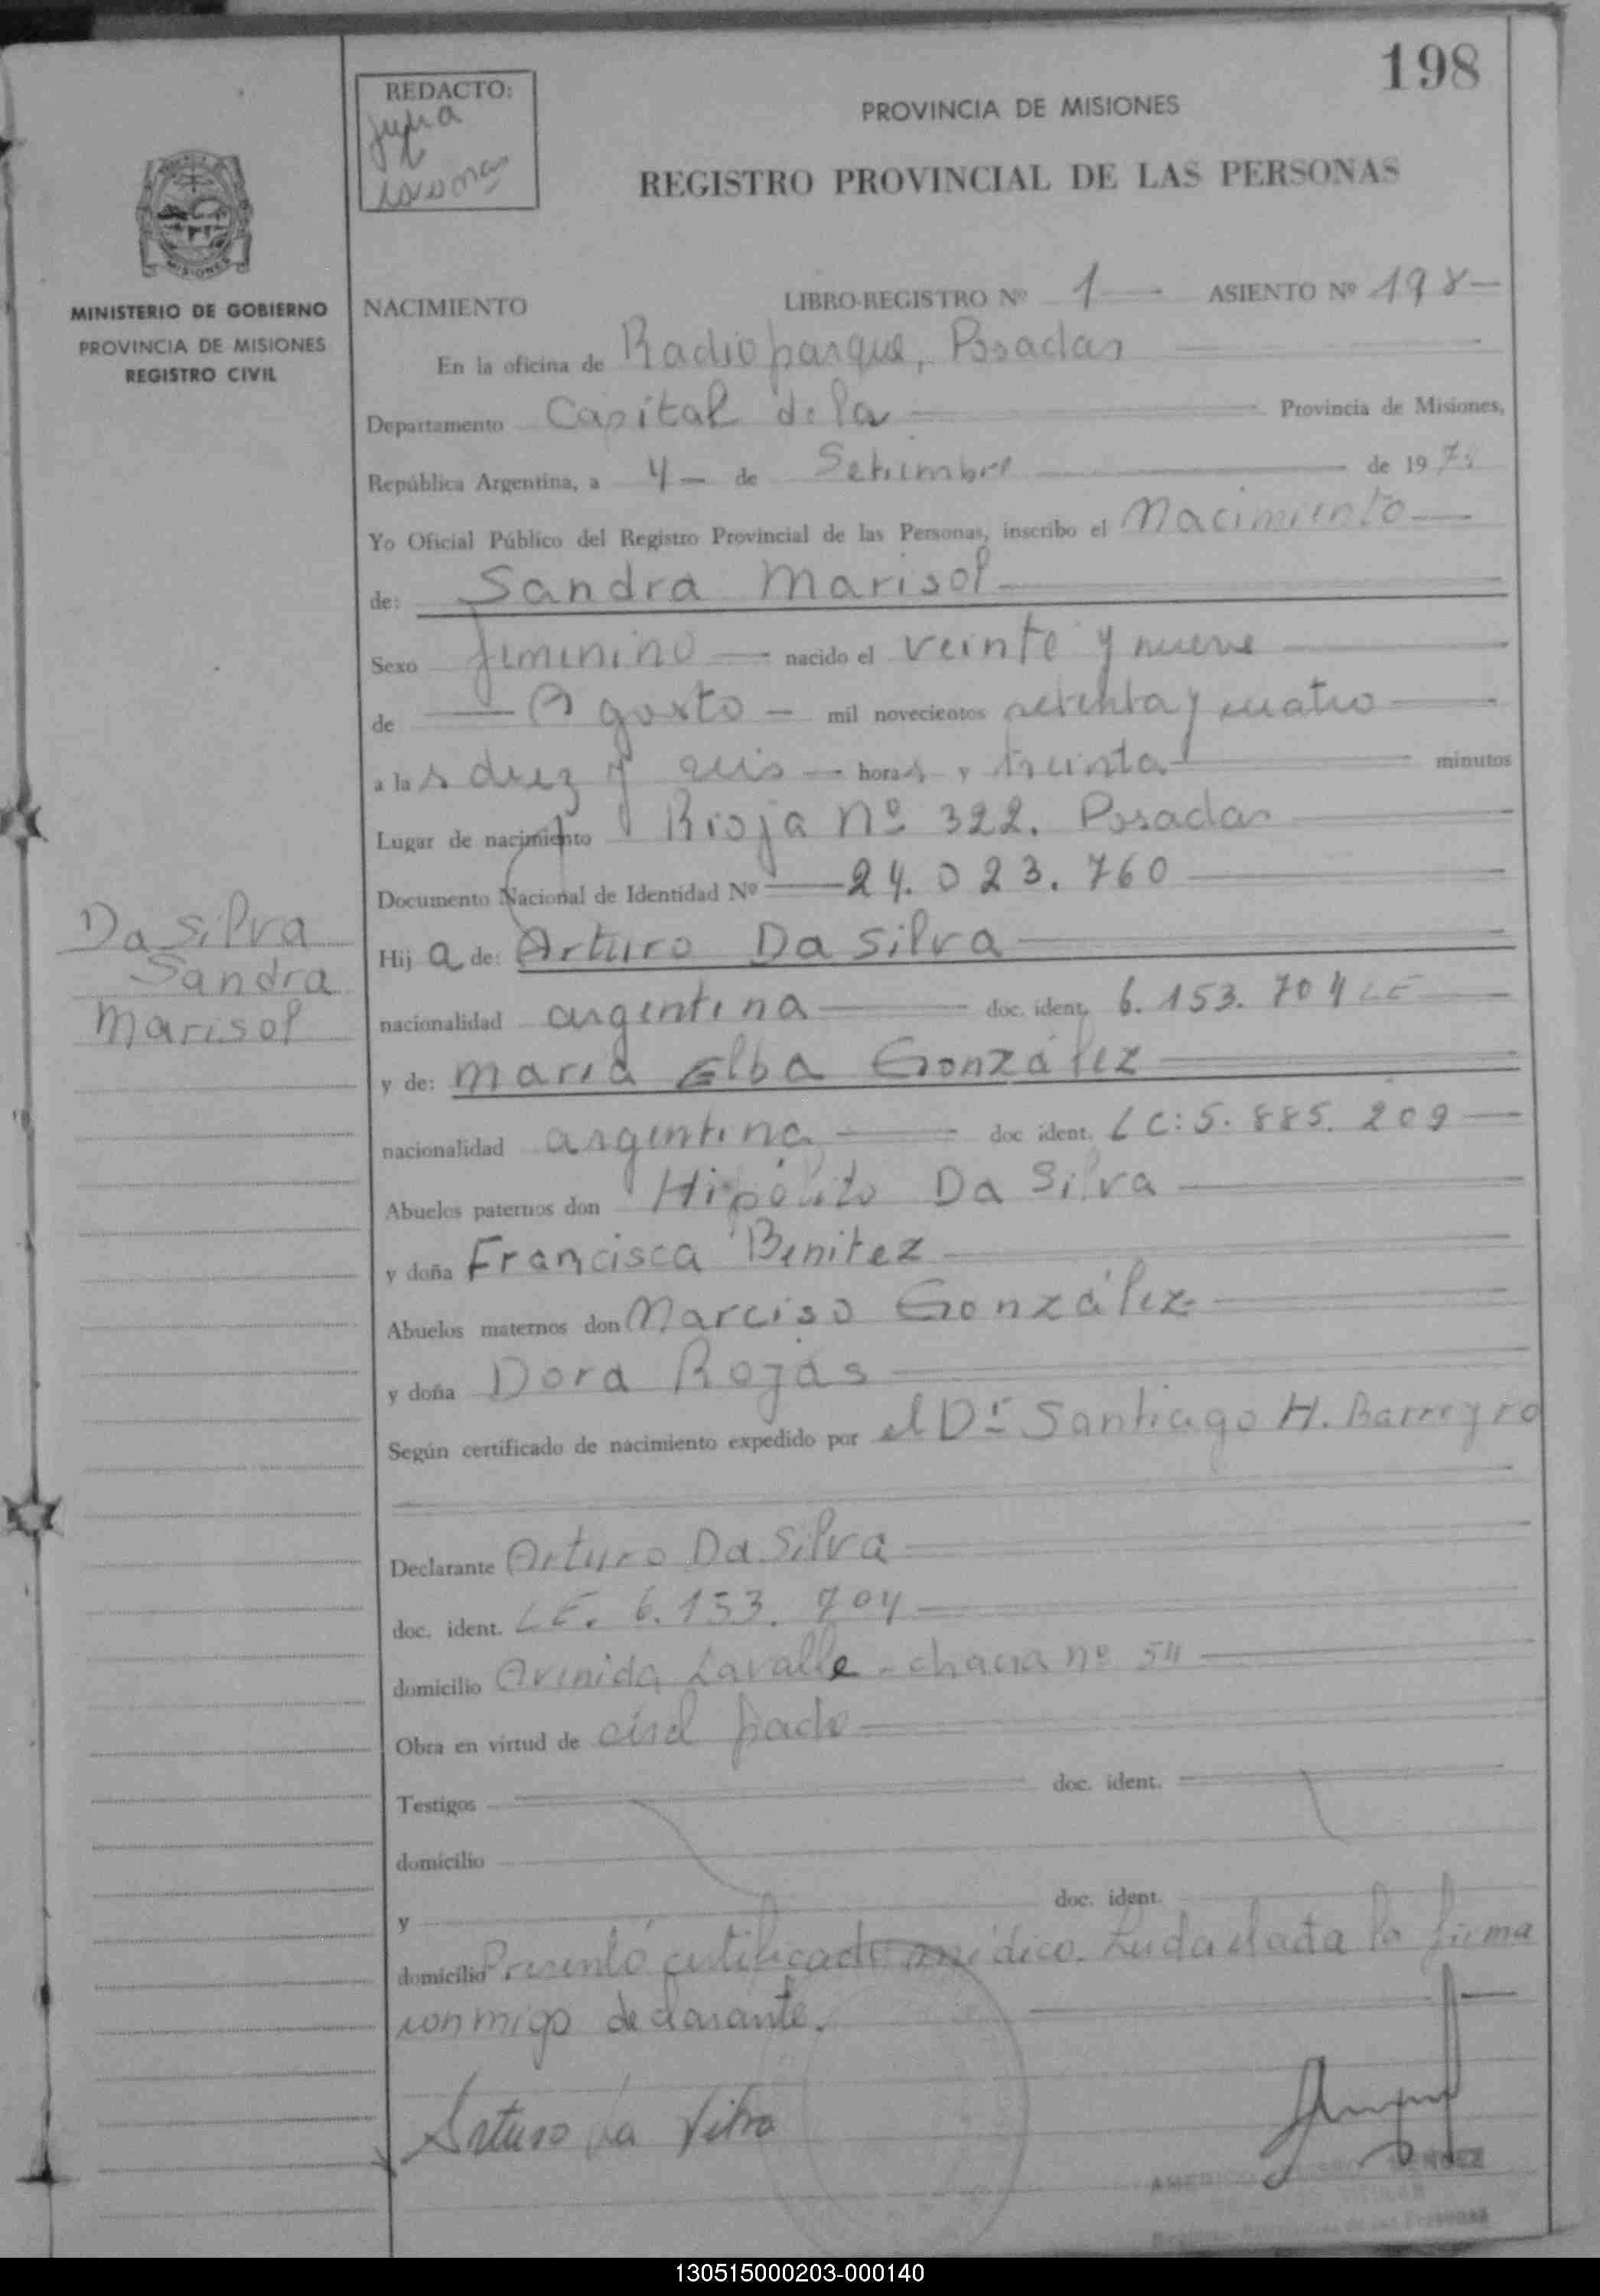 198
REDACTO:
PROVINCIA DE MISIONES
REGISTRO PROVINCIAL DE LAS PERSONAS
MISIONES
MINISTERIO DE GOBIERNO
PROVINCIA DE MISIONES
REGISTRO CIVIL
NACIMIENTO LIBRO-REGISTRO Nº 1 ASIENTO Nº 198
En la oficina de Radioparque, Posadas
Departamento Capital de la Provincia de Misiones,
República Argentina, a 4 de Setiembre de 19
Yo Oficial Público del Registro Provincial de las Personas, inscribo el Nacimiento
de: Sandra Marisol
Sexo femenino nacido el veinte y nueve
de Agosto mil novecientos setenta y cuatro
a las diez y seis horas y treinta minutos
Lugar de nacimiento Rioja Nº 322. Posadas
Documento Nacional de Identidad Nº 24.023.760
Da Silva
Sandra
Marisol
Hija de: Arturo Da Silva
nacionalidad argentina doc. ident. 6.153.704 LE
y de: Maria Elba González
nacionalidad argentina doc ident. LC: 5.885.209
Abuelos paternos don Hipólito Da Silva
y doña Francisca Benitez
Abuelos maternos don Narciso González
y doña Dora Rojas
Según certificado de nacimiento expedido por el Dr Santiago H. Barreyro
Declarante Arturo Da Silva
doc. ident. LE. 6.153.704
domicilio Avenida Lavalle - chacra nº 54
Obra en virtud de ser el padre
Testigos doc. ident.
domicilio
y doc. ident.
domicilio Presentó certificado médico. Leida el acta la firma
conmigo declarante.
Arturo Da Silva
130515000203-000140